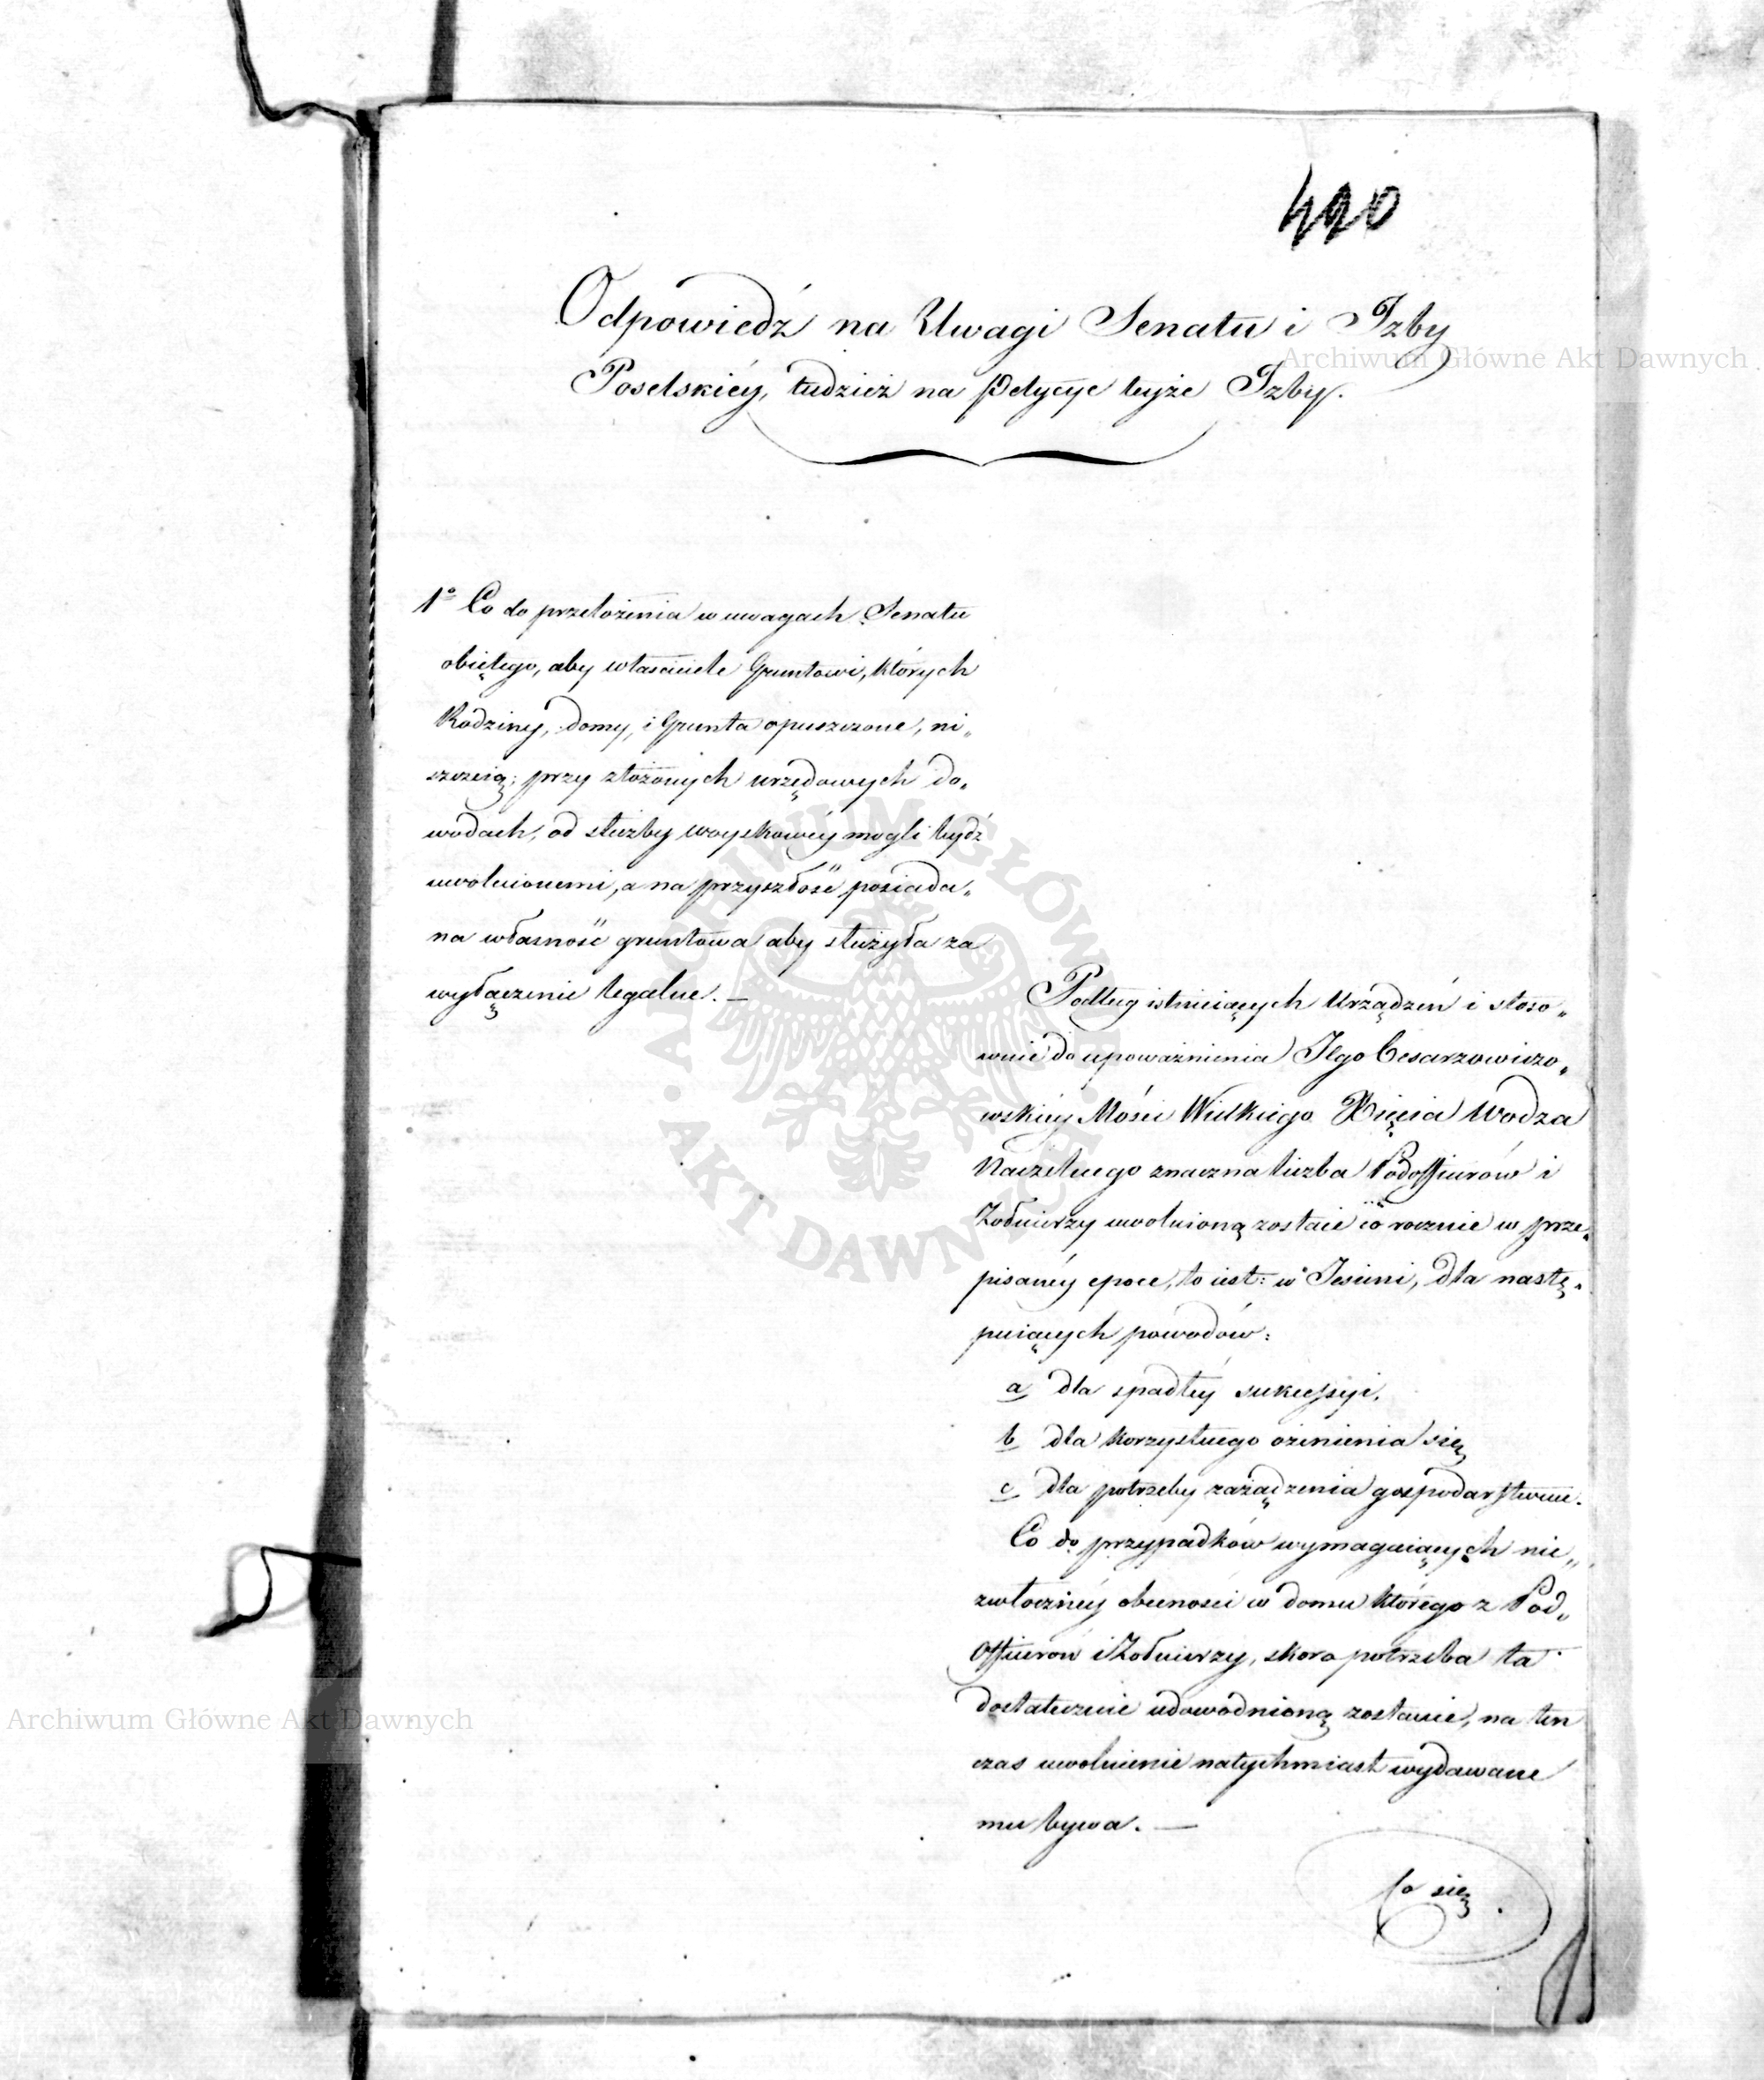 490
Odpowiedź na Uwagi Senatu i Izby
Poselskiéy, tudzież na Petycye teyże Izby.
1° Co do przełożenia w uwagach Senatu
obiętego, aby właściciele Gruntowi, których
Rodziny, domy, i Grunta opuszczone, ni„
szczeią; przy złożonych urzędowych do„
wodach, od służby woyskowéy mogli bydź
uwolnionemi, a na przyszłość posiada„
na własność gruntowa aby służyła za
wyłączenie legalne. —
Podług istnieiących Urządzeń i stoso„
wnie do upoważnienia Jego Cesarzowiczo„
wskiéy Mości Wielkiego Xięcia Wodza
Naczelnego znaczna liczba Podofficerów i
Żołnierzy uwolnioną zostaie co rocznie w prze„
pisanéy epoce, to iest: w Jesieni, dla nastę„
puiących powodów:
a dla spadłéy sukcessyi.
b dla korzystnego ożenienia się
c dla potrzeby zarządzenia gospodarstwem.
Co do przypadków wymagaiących nie„
zwłocznéy obecności w domu którego z Pod„
Officerów i Żołnierzy, skoro potrzeba ta
dostatecznie udowodnioną zostanie, na ten
czas uwolnienie natychmiast wydawane
mu bywa. —
Co się
Archiwum Główne Akt Dawnych
Archiwum Główne Akt Dawnych
ARCHIWUM GŁÓWNE AKT DAWNYCH